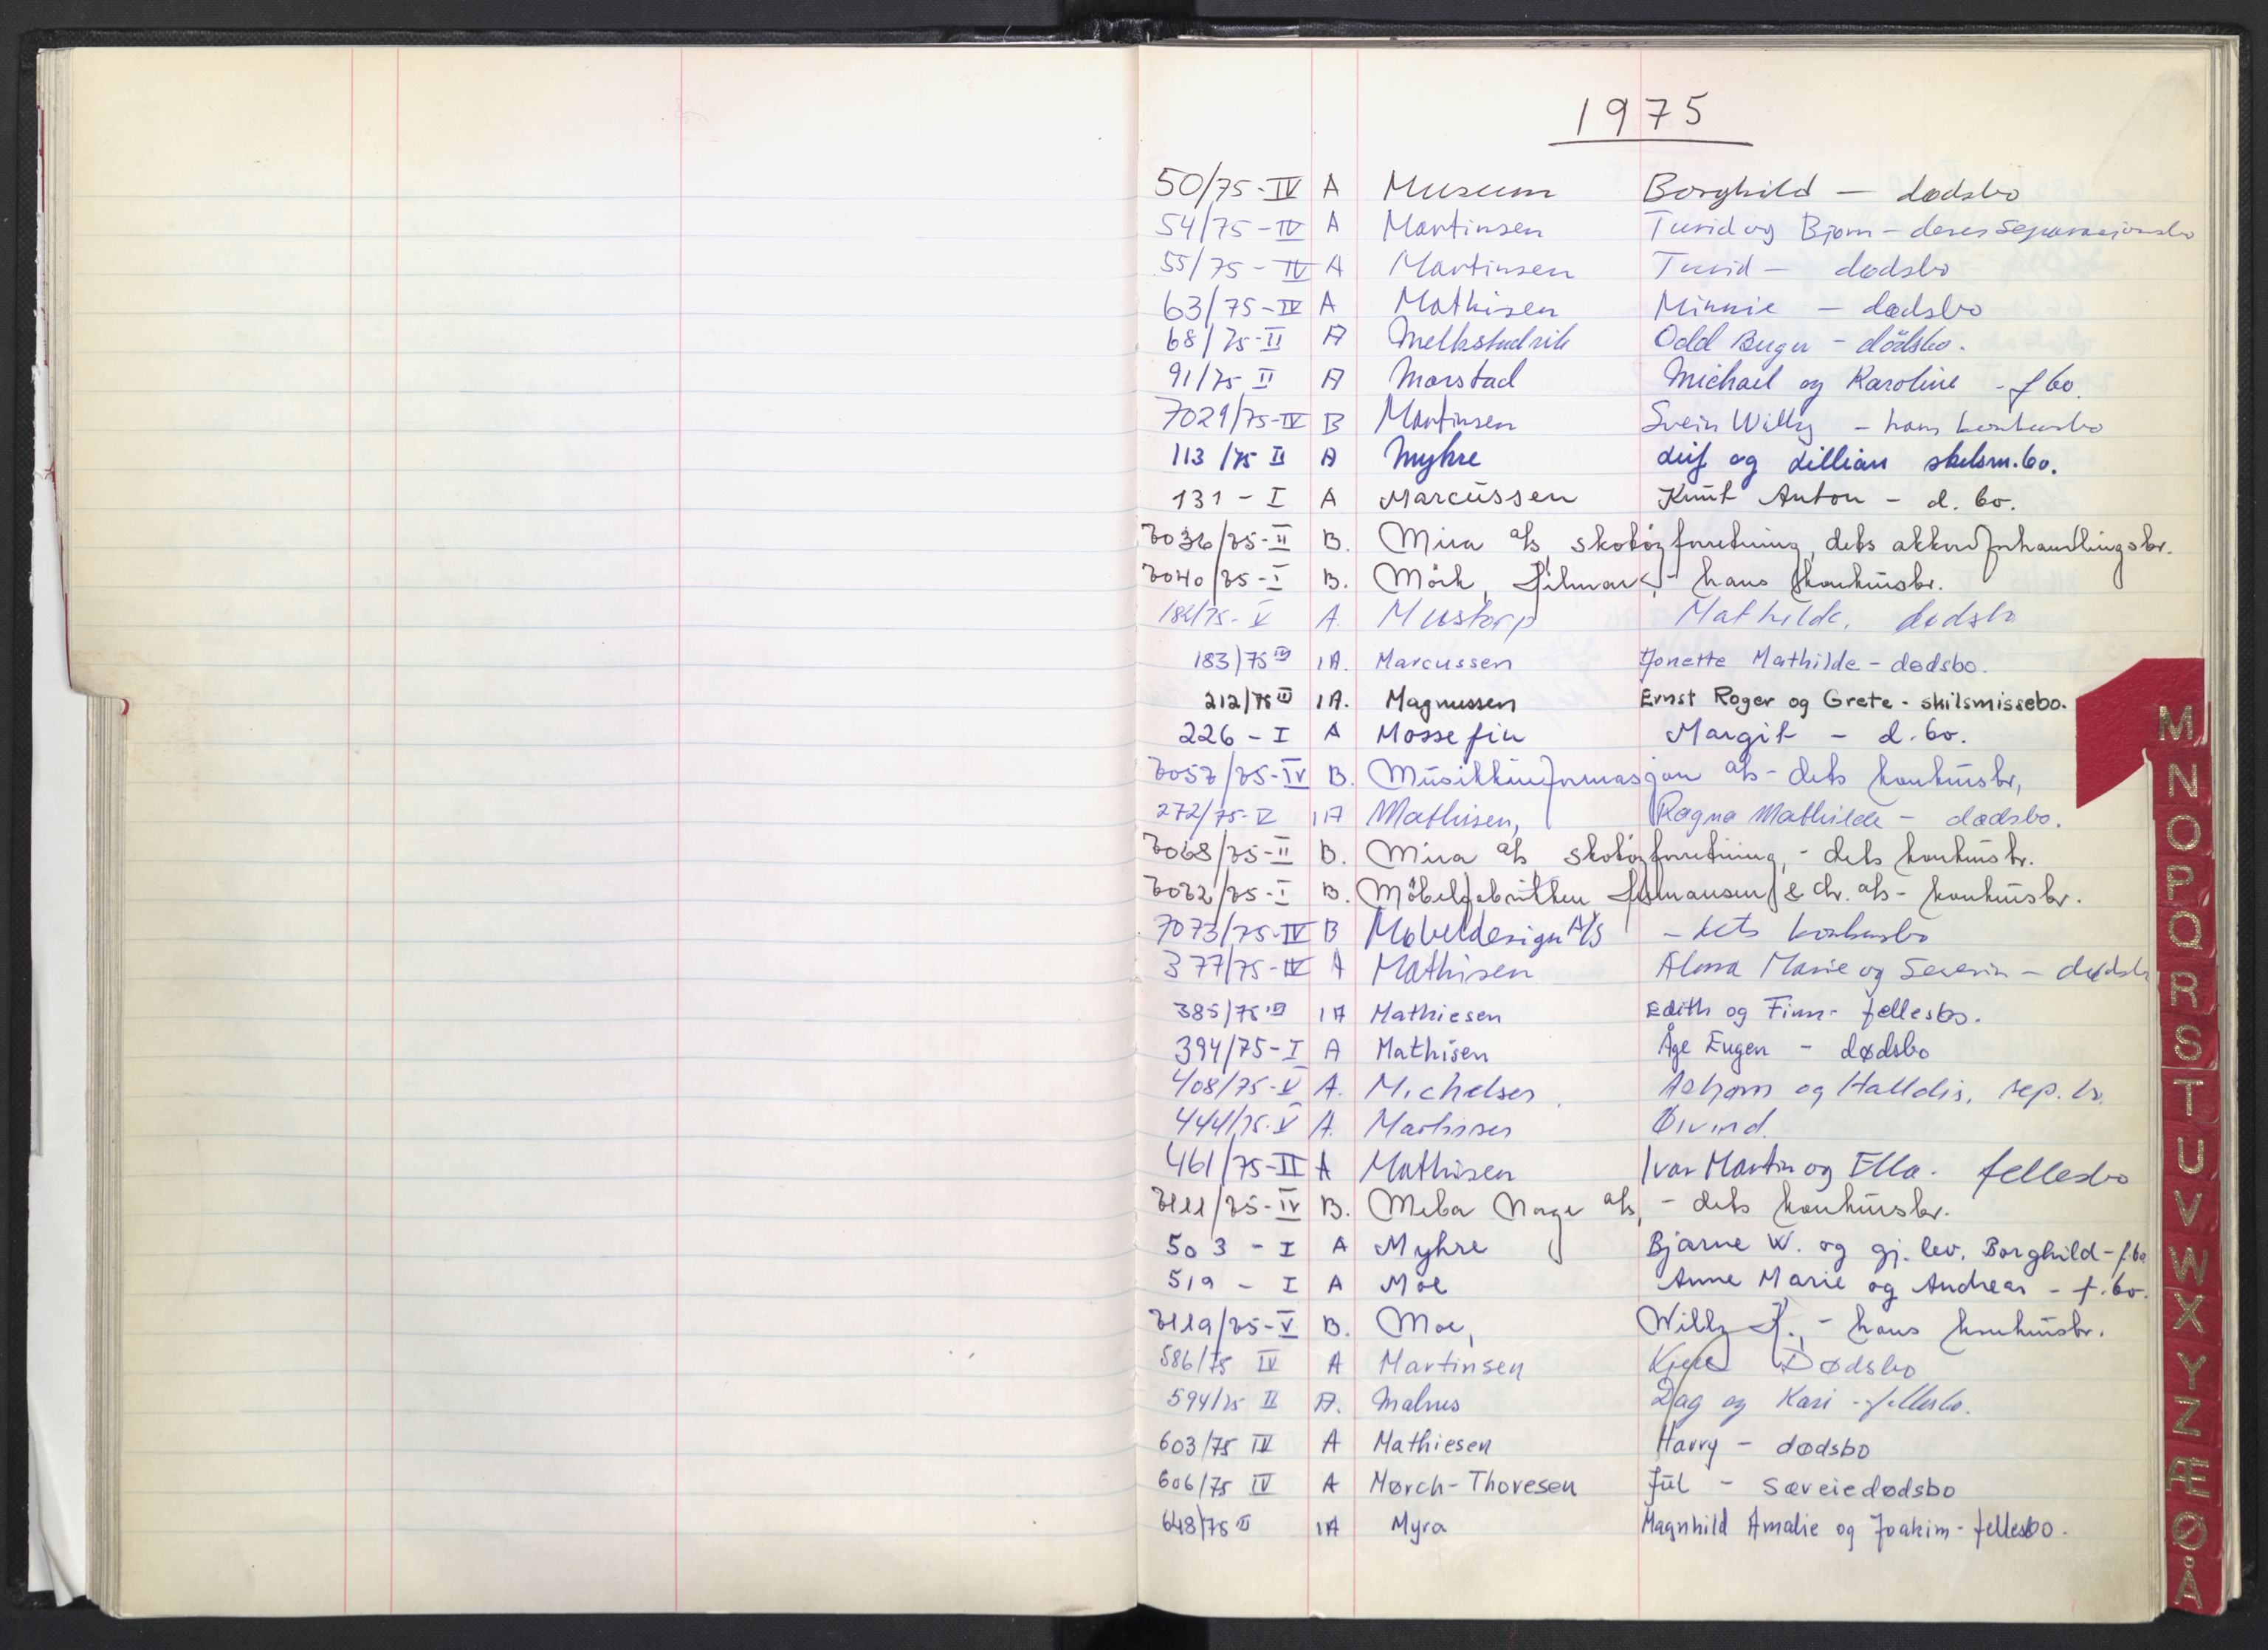 1975
50/75-IV A Museum Borghild — dødsbo
54/75-IV A Martinsen Turid og Bjørn - deres separasjonsbo
55/75-IV A Martinsen Turid - dødsbo
63/75-IV A Mathisen Minnie - dødsbo
68/75-II A Odd Birger - dödsbo.
91/75 II A Morstad Michael og Karoline - f bo.
7029/75-IV B Martinsen Svein Willy - hans konkursbo
113/75 II A Myhre Leif og Lillian skilsm.bo.
131 - I A Marcussen Knut Anton - d. bo.
7036/75-II B. Mira a/s skotöyforretning, dets akkordforhandlingsbo.
7040/75-I B. Mörk, Hilmar, - hans konkursbo.
182/75-V A. Mustorp Mathilde. dødsbo
183/75 IV 1A. Marcussen Jonette Mathilde - dødsbo.
212/75 III 1A. Magnussen Ernst Roger og Grete - skilsmissebo.
226 - I A Mossefin Margit - d. bo.
7057/75-IV B. Musikkinformasjon a/s - dets konkursbo,
272/75-V 1A Mathisen, Ragna Mathilde - dødsbo.
7068/75-II B. Mira a/s skotöyforretning, - dets konkursbo.
7072/75-I B. Möbelfabrikken & Chr. a/s - konkursbo.
7073/75-IV B Møbeldesign A/S - dets konkursbo
377/75-IV A Mathisen Alma Marie og Severin - dødsbo
385/75 III 1A Mathiesen Edith og Finn - fellesbo.
394/75-I A Mathisen Åge Eugen - dødsbo
408/75-V A. Michelsen. Asbjørn og Halldis, sep. bo.
444/75-V A. Mathisen Øivind.
461/75-II A Mathisen Ivar Martin og Ella. fellesbo
7111/75-IV B. Meba Norge a/s, - dets konkursbo.
503 - I A Myhre Bjarne W. og gj. lev. Borghild - f.bo
519 - I A Moe Anne Marie og Andreas - f. bo.
7119/75-V B. Moe, Willy H., - hans konkursbo.
586/75 IV A Martinsen Kjell Dødsbo
594/75 II A. Malnes Dag og Kari - fellesbo.
603/75 IV A Mathiesen Harry - dødsbo
606/75 IV A Mørch-Thoresen Jul - særeiedødsbo
648/75 II 1A Myra Magnhild Amalie og Joakim - fellesbo.
M
N
O
P
Q
R
S
T
U
V
W
X
Y
Z
Æ
Ø
Å